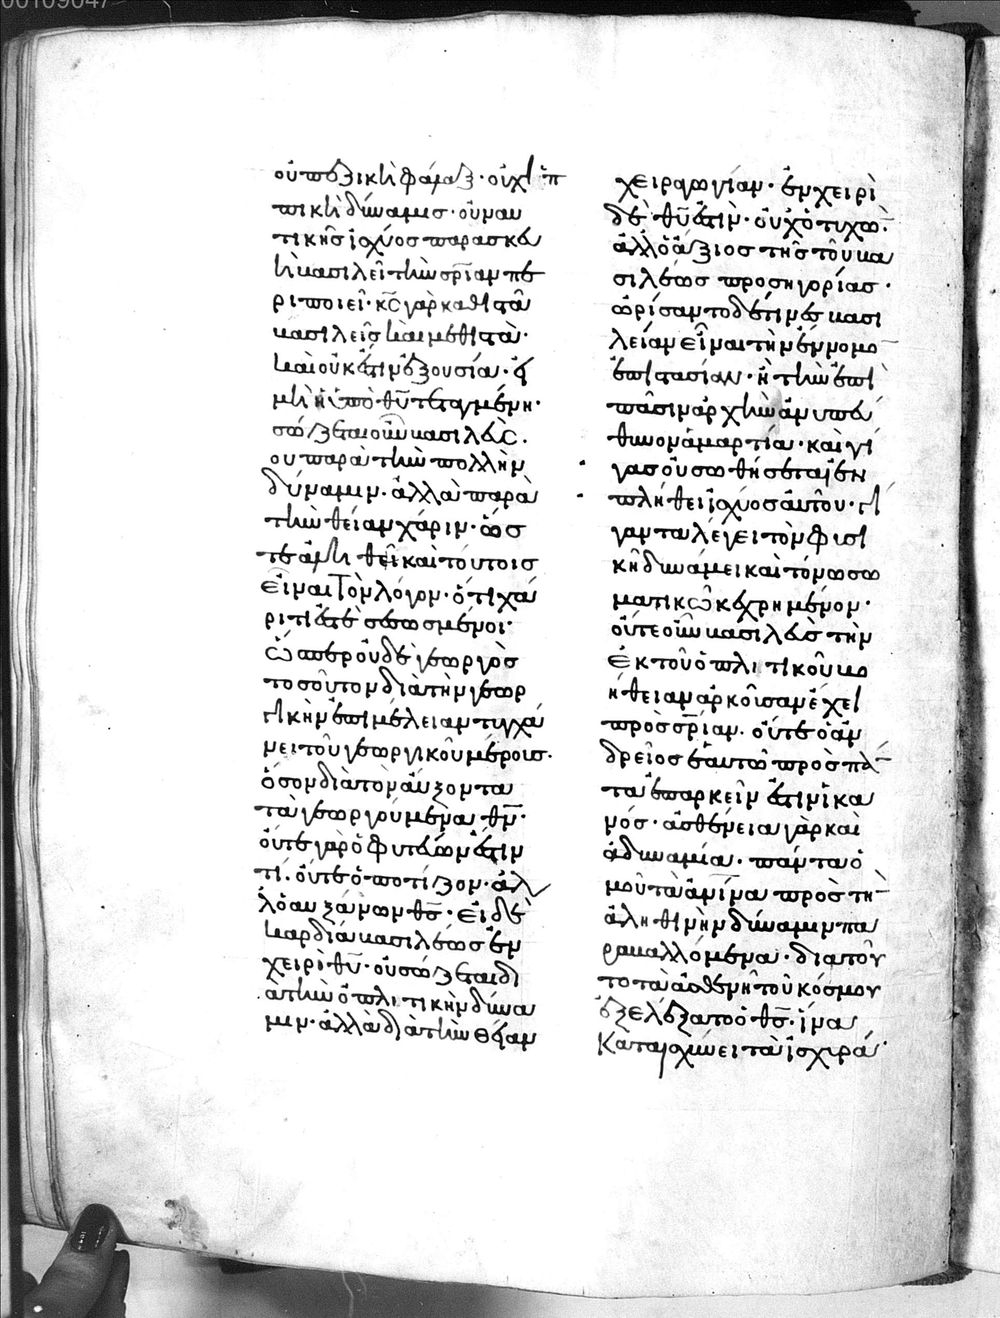 00109047
οὐ πεζικὴ φάλαξ· οὐχ ἱπ
πικὴ δύναμις· οὐ ναυ
τικῆς ἰσχύος παρασκευ
ὴ βασιλεῖ τὴν σ̅ρίαν πε
ριποιεῖ· κ̅ς γὰρ καθιστᾶ
βασιλεῖς καὶ μεθιστᾷ·
καὶ οὐκ ἔστιν ἐξουσία· εἰ
μὴ ἡ ὑπὸ θ̅υ τεταγμένη·
σώζεται οὖν βασιλεὺς·
οὐ παρὰ τὴν πολλὴν
δύναμιν· ἀλλὰ παρὰ
τὴν θείαν χάριν· ὥσ
τε ἀληθῆ καὶ τούτοις
εἶναι τὸν λόγον· ὅτι χά
ριτί ἐστὲ σεσωσμένοι·
ὥσπερ οὐδὲ γεωργὸς
τοσοῦτον διὰ τὴν γεωρ
γικὴν ἐπιμέλειαν τυγχά
νει τοῦ γεωργικοῦ μέρους·
ὅσον διὰ τὸν αὔξοντα
τὰ γεωργούμενα θ̅ν·
οὔτε γὰρ ὁ φυτεύων ἐστίν
τί· οὔτε ὁ ποτίζων· ἀλ
λ' ὁ αὐξάνων θ̅ς· εἰ δὲ
καρδία βασιλέως ἐν
χειρὶ θ̅υ· οὐ σώζεται δι
ὰ τὴν ὁπλιτικὴν δύνα
μιν· ἀλλὰ διὰ τὴν θείαν
χειραγωγίαν· ἐν χειρὶ
δὲ θ̅υ ἐστὶν· οὐχ ὁ τυχών·
ἀλλ' ὁ ἄξιος τῆς τοῦ βα
σιλέως προσηγορίας·
ὡρίσαντο δέ τινες βασι
λείαν εἶναι τὴν ἔννομο
ἐπιστασίαν· ἢ τὴν ἐπὶ
πᾶσιν ἀρχὴν ἀνυπεύ
θυνον ἁμαρτία· καὶ γί
γας οὐ σωθήσεται ἐν
πλήθει ἰσχύος αὐτοῦ· γί
γαντα λέγει τὸν φυσι
κῇ δυνάμει καὶ τόνω σω
ματικῶ κεχρημένον·
οὔτε οὖν βασιλεὺς τὴν
ἐκ τοῦ ὁπλιτικοῦ βο
ήθειαν ἀρκοῦσαν ἔχει
πρὸς σ̅ριαν· οὔτε ὁ ἀν
δρεῖος ἑαυτῶ πρὸς πά
τα ἐπαρκεῖν ἐστὶν ἱκα
νός· ἀσθένεια γὰρ καὶ
ἀδυναμία· πάντα ὁ
μοῦ τὰ ἀν̅ινα πρὸς τὴ
ἀληθινὴν δύναμιν πα
ραβαλλόμενα· διὰ τοῦ
το τὰ ἀσθενῆ τοῦ κόσμου
ἐξελέξατο ὁ θ̅ς· ἵνα
καταισχύνει τὰ ἰσχυρά·